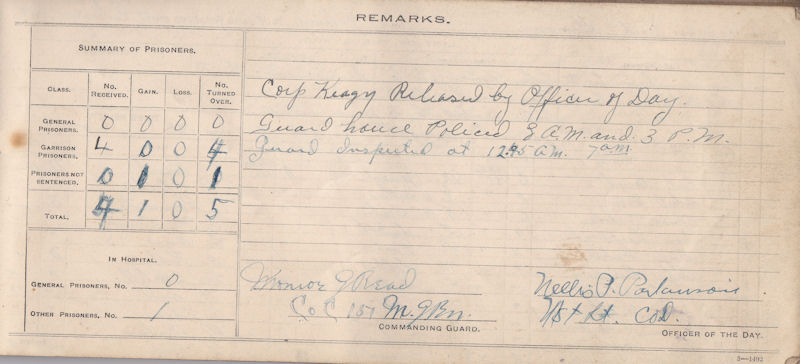 REMARKS.
SUMMARY OF PRISONERS.
CLASS. No. RECEIVED. GAIN. LOSS. No. TURNED OVER.
GENERAL PRISONERS. 0 0 0 0
GARRISON PRISONERS. 4 0 0 4
PRISONERS NOT SENTENCED. 0 1 0 1
TOTAL. 4 1 0 5
IN HOSPITAL.
GENERAL PRISONERS, No. 0
OTHER PRISONERS, No. 1
Corp Keagy Released by Officer of Day.
Guard house Policed 8 A.M. and 3 P.M.
Guard Inspected at 12:45 A.M. 7 am.
Monroe J Read
Co C 151 M. G Bn.
COMMANDING GUARD.
Nellis P. Parkinson
1st Lt.
OFFICER OF THE DAY.
3—1492